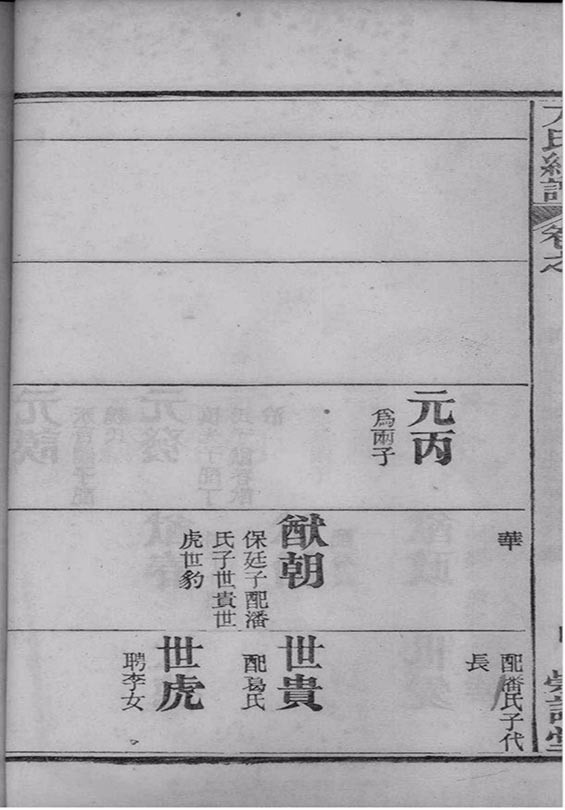 卷之
元丙
爲雨子
華
猷朝
保廷子配潘
氏子世貴世
虎世豹
配潘氏子代
長
世貴
配葛氏
世虎
聘李女